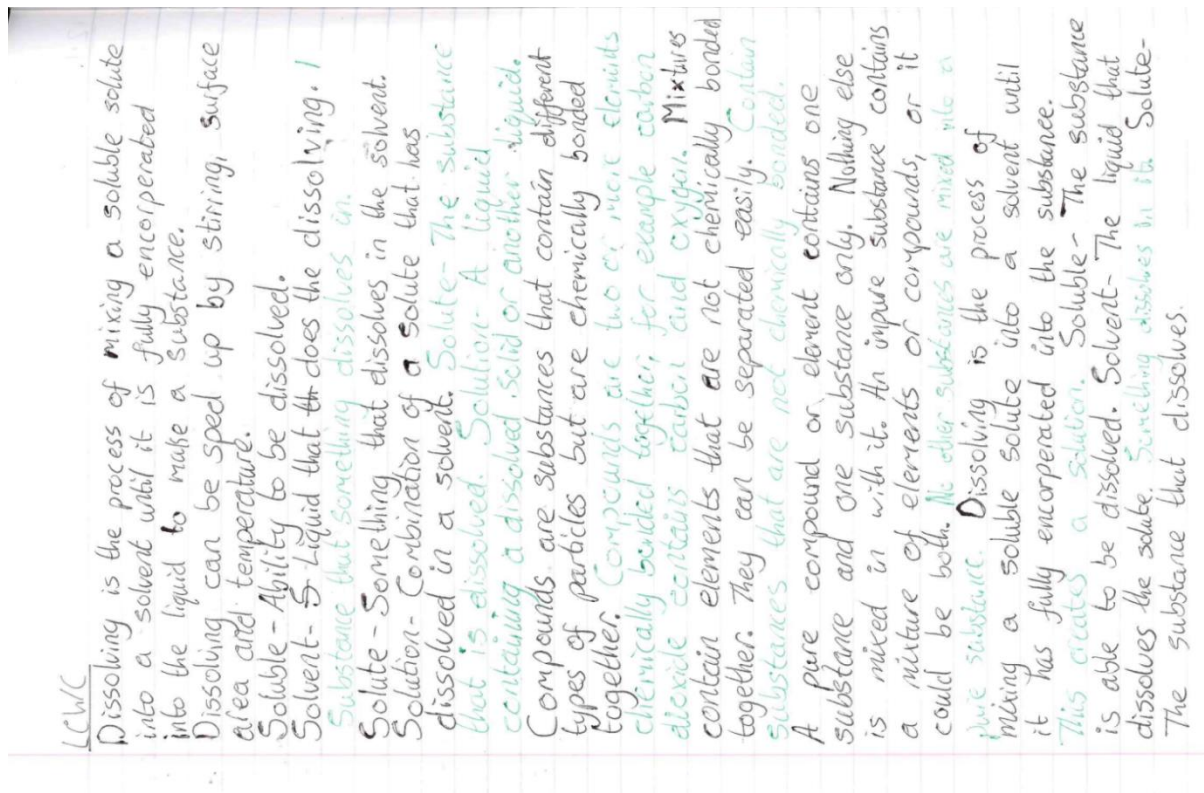 LCWC
Dissolving is the process of mixing a soluble solute
into a solvent until it is fully encorperated
into the liquid to make a substance.
Dissolving can be sped up by stiring, surface
area and temperature.
Soluble - Ability to be dissolved.
Solvent - Liquid that does the dissolving.
Substance that something dissolves in.
Solute - Something that dissolves in the solvent.
Solution - Combination of a solute that has
dissolved in a solvent. Solute - The substance
that is dissolved. Solution - A liquid
containing a dissolved solid or another liquid.
Compounds are substances that contain different
types of particles but are chemically bonded
together. Compounds are two or more elements
chemically bonded together, for example carbon
dioxide contains carbon and oxygen. Mixtures
contain elements that are not chemically bonded
together. They can be separated easily. Contain
substances that are not chemically bonded.
A pure compound or element contains one
substance and one substance only. Nothing else
is mixed in with it. An impure substance contains
a mixture of elements or compounds, or it
could be both. No other substances are mixed into a
pure substance. Dissolving is the process of
mixing a soluble solute into a solvent until
it has fully encorperated into the substance.
This creates a solution. Soluble - The substance
is able to be dissolved. Solvent - The liquid that
dissolves the solute. Something dissolves in it. Solute -
The substance that dissolves.